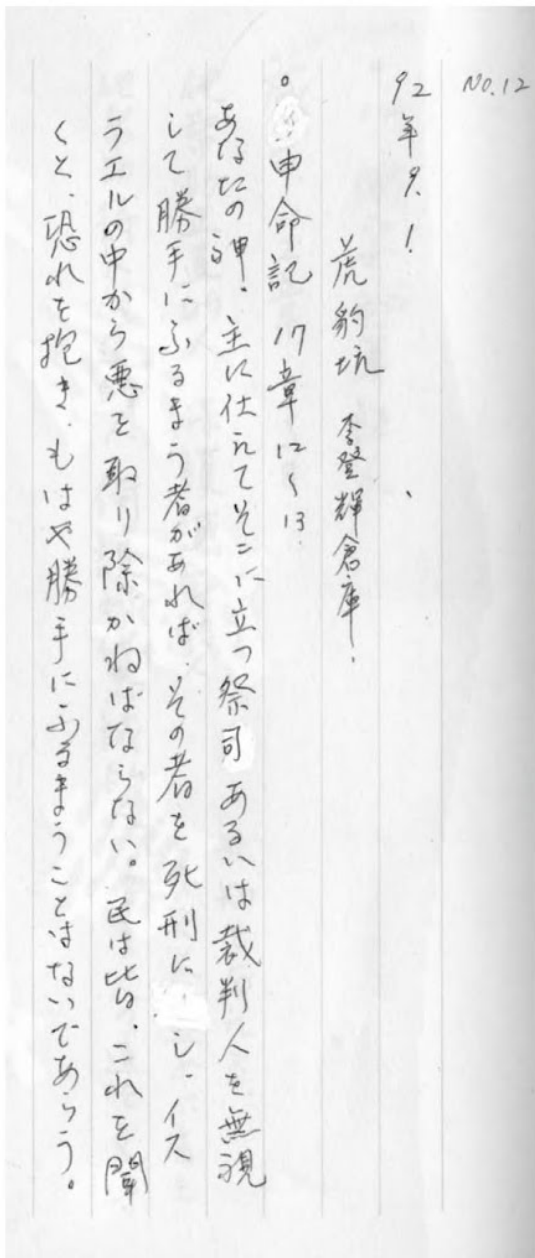 No.12
92年9.1
虎豹坑 李登輝倉庫.
。申命記 17章12〜13.
あなたの神、主に仕えてそこに立つ祭司あるいは裁判人を無視
して勝手にふるまう者があれば、その者を死刑にし、イス
ラエルの中から悪を取り除かねばならない。民は皆、これを聞
くと、恐れを抱き、もはや勝手にふるまうことはないであろう。